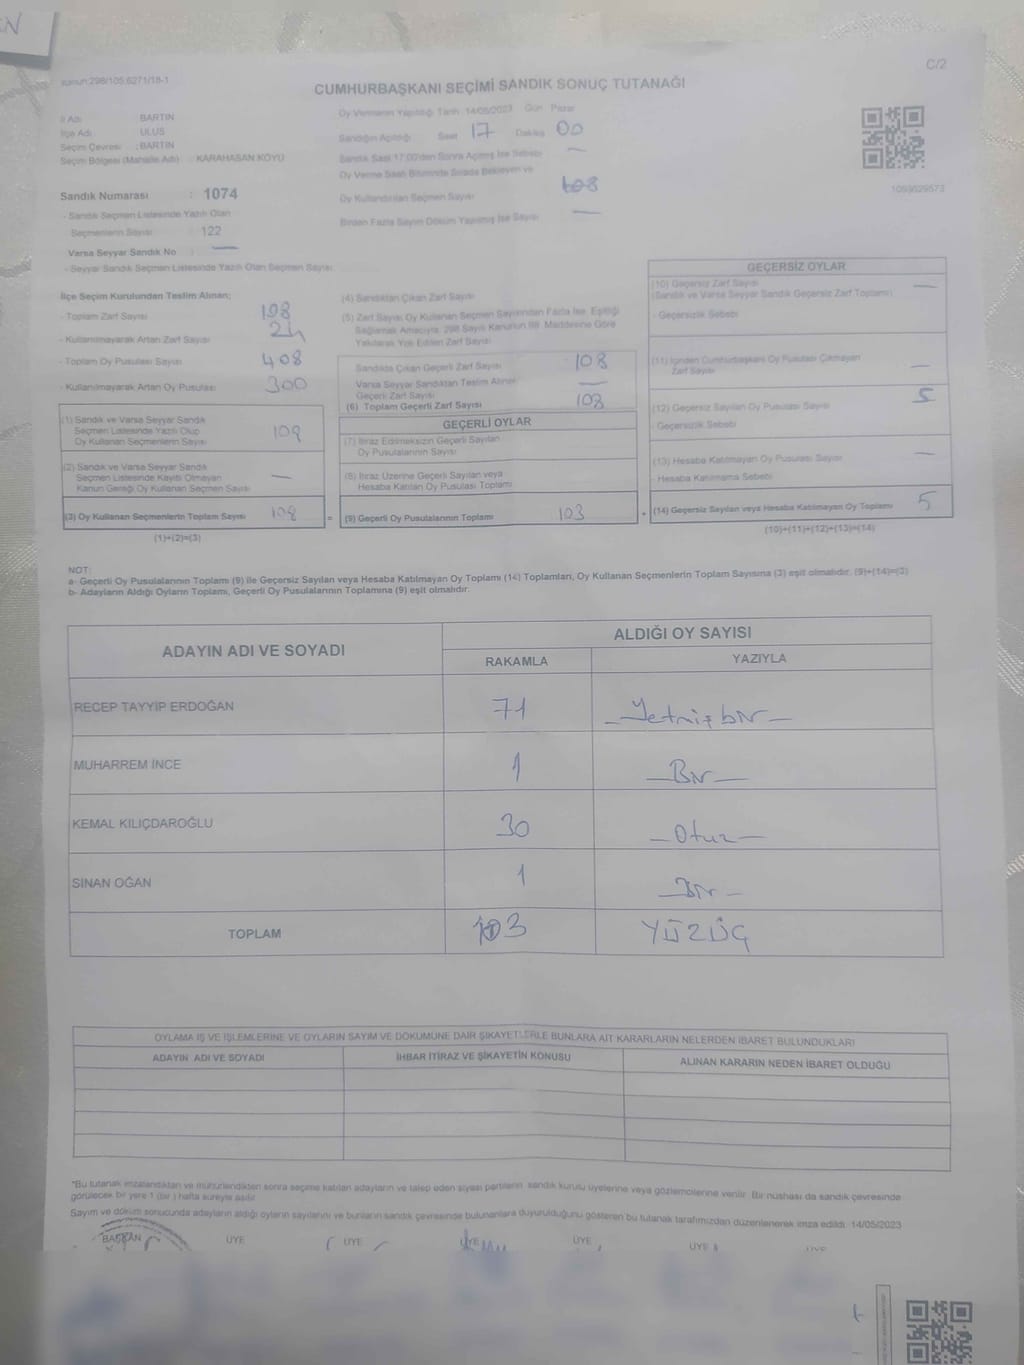 Kanun:298/105,6271/18-1
C/2
CUMHURBAŞKANI SEÇİMİ SANDIK SONUÇ TUTANAĞI
İl Adı BARTIN
İlçe Adı ULUS
Seçim Çevresi :BARTIN
Seçim Bölgesi (Mahalle Adı) : KARAHASAN KÖYÜ
Oy Vermenin Yapıldığı Tarih :14/05/2023 Gün Pazar
Sandığın Açıldığı Saat 17 Dakika 00
Sandık Saat 17.00'den Sonra Açılmış İse Sebebi —
Oy Verme Saati Bitiminde Sırada Bekleyen ve
Oy Kullandırılan Seçmen Sayısı 108
Birden Fazla Sayım Döküm Yapılmış İse Sayısı —
Sandık Numarası : 1074
- Sandık Seçmen Listesinde Yazılı Olan
Seçmenlerin Sayısı : 122
Varsa Seyyar Sandık No : —
- Seyyar Sandık Seçmen Listesinde Yazılı Olan Seçmen Sayısı
İlçe Seçim Kurulundan Teslim Alınan;
- Toplam Zarf Sayısı 108
- Kullanılmayarak Artan Zarf Sayısı
- Toplam Oy Pusulası Sayısı 408
- Kullanılmayarak Artan Oy Pusulası 300
(1) Sandık ve Varsa Seyyar Sandık
Seçmen Listesinde Yazılı Olup
Oy Kullanan Seçmenlerin Sayısı 108
(2) Sandık ve Varsa Seyyar Sandık
Seçmen Listesinde Kayıtlı Olmayan
Kanun Gereği Oy Kullanan Seçmen Sayısı —
(3) Oy Kullanan Seçmenlerin Toplam Sayısı 108
(1)+(2)=(3)
(4) Sandıktan Çıkan Zarf Sayısı
(5) Zarf Sayısı Oy Kullanan Seçmen Sayısından Fazla İse, Eşitliği
Sağlamak Amacıyla, 298 Sayılı Kanunun 98. Maddesine Göre
Yakılarak Yok Edilen Zarf Sayısı
Sandıkta Çıkan Geçerli Zarf Sayısı 108
Varsa Seyyar Sandıktan Teslim Alınan
Geçerli Zarf Sayısı —
(6) Toplam Geçerli Zarf Sayısı 108
GEÇERLİ OYLAR
(7) İtiraz Edilmeksizin Geçerli Sayılan
Oy Pusulalarının Sayısı
(8) İtiraz Üzerine Geçerli Sayılan veya
Hesaba Katılan Oy Pusulası Toplamı
= (9) Geçerli Oy Pusulalarının Toplamı 103
1099629573
GEÇERSİZ OYLAR
(10) Geçersiz Zarf Sayısı —
(Sandık ve Varsa Seyyar Sandık Geçersiz Zarf Toplamı)
- Geçersizlik Sebebi
(11) İçinden Cumhurbaşkanı Oy Pusulası Çıkmayan
Zarf Sayısı —
(12) Geçersiz Sayılan Oy Pusulası Sayısı 5
- Geçersizlik Sebebi
(13) Hesaba Katılmayan Oy Pusulası Sayısı —
- Hesaba Katılmama Sebebi
+ (14) Geçersiz Sayılan veya Hesaba Katılmayan Oy Toplamı 5
(10)+(11)+(12)+(13)=(14)
NOT:
a- Geçerli Oy Pusulalarının Toplamı (9) ile Geçersiz Sayılan veya Hesaba Katılmayan Oy Toplamı (14) Toplamları, Oy Kullanan Seçmenlerin Toplam Sayısına (3) eşit olmalıdır. (9)+(14)=(3)
b- Adayların Aldığı Oyların Toplamı, Geçerli Oy Pusulalarının Toplamına (9) eşit olmalıdır.
ADAYIN ADI VE SOYADI
ALDIĞI OY SAYISI
RAKAMLA YAZIYLA
RECEP TAYYİP ERDOĞAN 71 —Yetmişbir—
MUHARREM İNCE 1 —Bir—
KEMAL KILIÇDAROĞLU 30 —Otuz—
SİNAN OĞAN 1 —Bir—
TOPLAM 103 YÜZÜÇ
OYLAMA İŞ VE İŞLEMLERİNE VE OYLARIN SAYIM VE DÖKÜMÜNE DAİR ŞİKAYETLERLE BUNLARA AİT KARARLARIN NELERDEN İBARET BULUNDUKLARI
ADAYIN ADI VE SOYADI İHBAR İTİRAZ VE ŞİKAYETİN KONUSU ALINAN KARARIN NEDEN İBARET OLDUĞU
*Bu tutanak imzalandıktan ve mühürlendikten sonra seçime katılan adayların ve talep eden siyasi partilerin sandık kurulu üyelerine veya gözlemcilerine verilir. Bir nüshası da sandık çevresinde
görülecek bir yere 1 (bir ) hafta süreyle asılır.
Sayım ve döküm sonucunda adayların aldığı oyların sayılarını ve bunların sandık çevresinde bulunanlara duyurulduğunu gösteren bu tutanak tarafımızdan düzenlenerek imza edildi. 14/05/2023
BAŞKAN ÜYE ÜYE ÜYE ÜYE ÜYE ÜYE